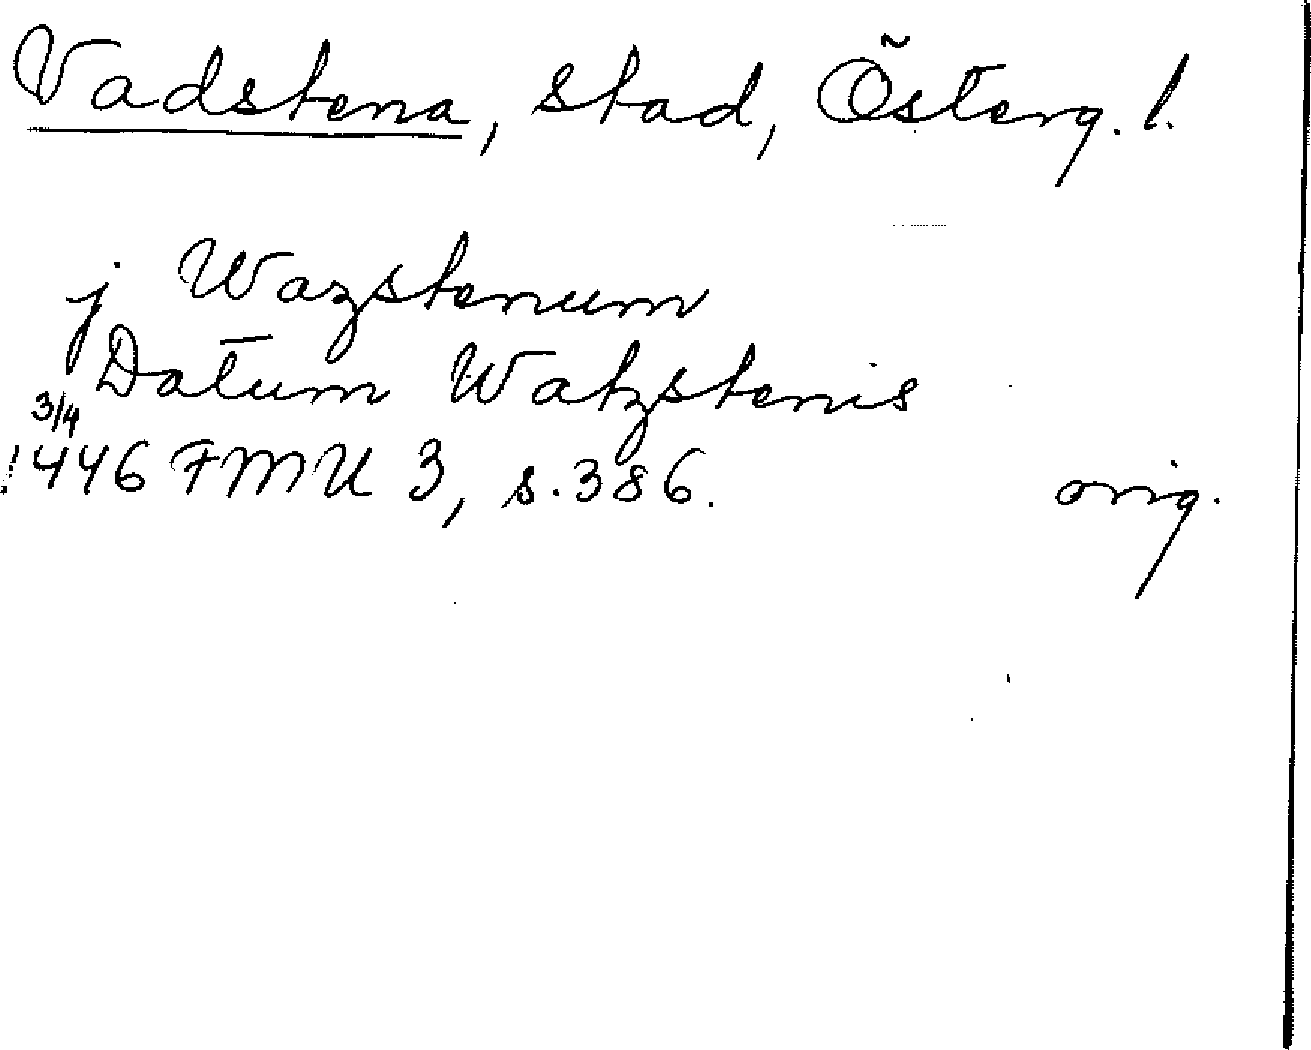 Vadstena, stad, Österg. l.
j Wazstenum
Datum Watzstenis
3/4
1446 FMU 3, s. 386. orig.